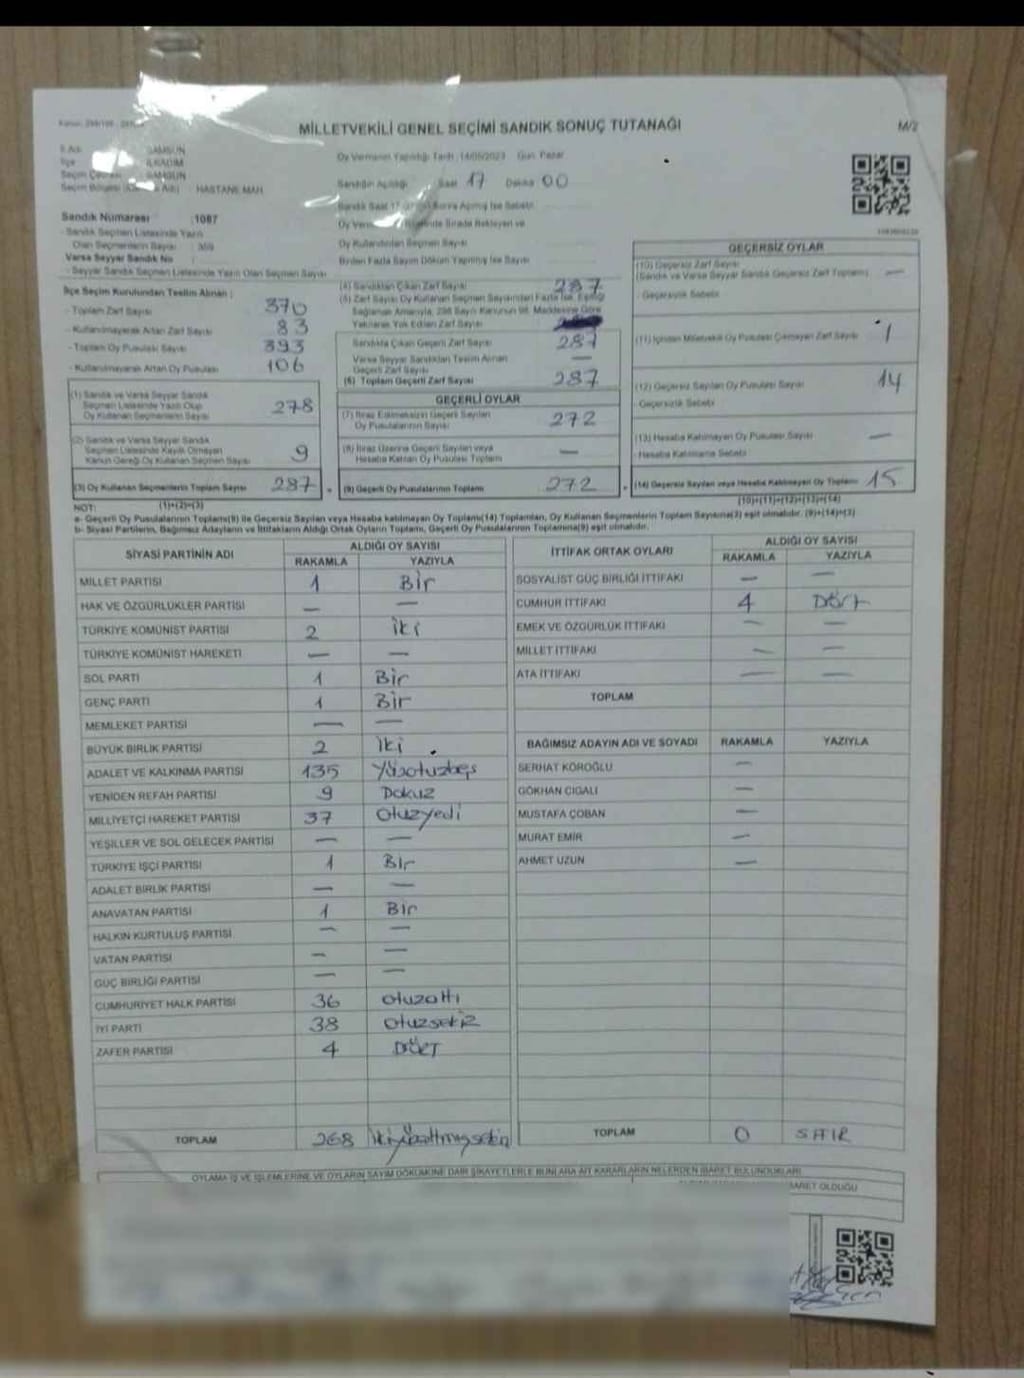 MİLLETVEKİLİ GENEL SEÇİMİ SANDIK SONUÇ TUTANAĞI
M/2
SAMSUN
İlçe İLKADIM
Seçim Çevresi SAMSUN
Seçim Bölgesi HASTANE MAH.
Oy Vermenin Yapıldığı Tarih : 14/05/2023 Gün: Pazar
Sandığın Açıldığı Saat 17 Dakika 00
Sandık Numarası :1087
- Sandık Seçmen Listesinde Yazılı
Olan Seçmenlerin Sayısı
Varsa Seyyar Sandık No
- Seyyar Sandık Seçmen Listesinde Yazılı Olan Seçmen Sayısı
Oy Kullandırılan Seçmen Sayısı
Birden Fazla Sayım Döküm Yapılmış İse Sayısı
İlçe Seçim Kurulundan Teslim Alınan :
- Toplam Zarf Sayısı 370
- Kullanılmayarak Artan Zarf Sayısı 83
- Toplam Oy Pusulası Sayısı 393
- Kullanılmayarak Artan Oy Pusulası 106
(1) Sandık ve Varsa Seyyar Sandık
Seçmen Listesinde Yazılı Olup
Oy Kullanan Seçmenlerin Sayısı 278
(2) Sandık ve Varsa Seyyar Sandık
Seçmen Listesinde Kayıtlı Olmayan
Kanun Gereği Oy Kullanan Seçmen Sayısı 9
(3) Oy Kullanan Seçmenlerin Toplam Sayısı 287
(4) Sandıktan Çıkan Zarf Sayısı 287
(5) Zarf Sayısı Oy Kullanan Seçmen Sayısından Fazla İse, Eşitliği
Sağlamak Amacıyla, 298 Sayılı Kanunun 98. Maddesine Göre
Yakılarak Yok Edilen Zarf Sayısı
Sandıkta Çıkan Geçerli Zarf Sayısı 287
Varsa Seyyar Sandıktan Teslim Alınan
Geçerli Zarf Sayısı —
(6) Toplam Geçerli Zarf Sayısı 287
GEÇERLİ OYLAR
(7) İtiraz Edilmeksizin Geçerli Sayılan
Oy Pusulalarının Sayısı 272
(8) İtiraz Üzerine Geçerli Sayılan veya
Hesaba Katılan Oy Pusulası Toplamı —
(9) Geçerli Oy Pusulalarının Toplamı 272
GEÇERSİZ OYLAR
(10) Geçersiz Zarf Sayısı
(Sandık ve Varsa Seyyar Sandık Geçersiz Zarf Toplamı) —
- Geçersizlik Sebebi:
(11) İçinden Milletvekili Oy Pusulası Çıkmayan Zarf Sayısı 1
(12) Geçersiz Sayılan Oy Pusulası Sayısı 14
- Geçersizlik Sebebi:
(13) Hesaba Katılmayan Oy Pusulası Sayısı —
- Hesaba Katılmama Sebebi:
(14) Geçersiz Sayılan veya Hesaba Katılmayan Oy Toplamı 15
NOT: (1)+(2)=(3)
(10)+(11)+(12)+(13)=(14)
a- Geçerli Oy Pusulalarının Toplamı(9) ile Geçersiz Sayılan veya Hesaba katılmayan Oy Toplamı(14) Toplamları, Oy Kullanan Seçmenlerin Toplam Sayısına(3) eşit olmalıdır. (9)+(14)=(3)
b- Siyasi Partilerin, Bağımsız Adayların ve İttifakların Aldığı Ortak Oyların Toplamı, Geçerli Oy Pusulalarının Toplamına(9) eşit olmalıdır.
SİYASİ PARTİNİN ADI ALDIĞI OY SAYISI
RAKAMLA YAZIYLA
MİLLET PARTİSİ 1 Bir
HAK VE ÖZGÜRLÜKLER PARTİSİ — —
TÜRKİYE KOMÜNİST PARTİSİ 2 İki
TÜRKİYE KOMÜNİST HAREKETİ — —
SOL PARTİ 1 Bir
GENÇ PARTİ 1 Bir
MEMLEKET PARTİSİ — —
BÜYÜK BİRLİK PARTİSİ 2 İki
ADALET VE KALKINMA PARTİSİ 135 Yüzotuzbeş
YENİDEN REFAH PARTİSİ 9 Dokuz
MİLLİYETÇİ HAREKET PARTİSİ 37 Otuzyedi
YEŞİLLER VE SOL GELECEK PARTİSİ — —
TÜRKİYE İŞÇİ PARTİSİ 1 Bir
ADALET BİRLİK PARTİSİ — —
ANAVATAN PARTİSİ 1 Bir
HALKIN KURTULUŞ PARTİSİ — —
VATAN PARTİSİ — —
GÜÇ BİRLİĞİ PARTİSİ — —
CUMHURİYET HALK PARTİSİ 36 otuzaltı
İYİ PARTİ 38 otuzsekiz
ZAFER PARTİSİ 4 DÖRT
TOPLAM 268 İkiyüzaltmışsekiz
İTTİFAK ORTAK OYLARI ALDIĞI OY SAYISI
RAKAMLA YAZIYLA
SOSYALİST GÜÇ BİRLİĞİ İTTİFAKI — —
CUMHUR İTTİFAKI 4 Dört
EMEK VE ÖZGÜRLÜK İTTİFAKI — —
MİLLET İTTİFAKI — —
ATA İTTİFAKI — —
TOPLAM
BAĞIMSIZ ADAYIN ADI VE SOYADI RAKAMLA YAZIYLA
SERHAT KÖROĞLU —
GÖKHAN CIGALI —
MUSTAFA ÇOBAN —
MURAT EMİR —
AHMET UZUN —
TOPLAM 0 SIFIR
OYLAMA İŞ VE İŞLEMLERİNE VE OYLARIN SAYIM DÖKÜMÜNE DAİR ŞİKAYETLERLE BUNLARA AİT KARARLARIN NELERDEN İBARET BULUNDUKLARI
İBARET OLDUĞU